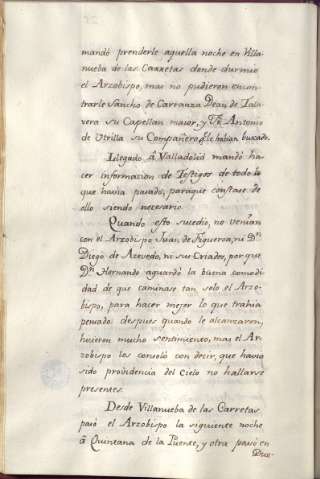 mandó prenderle aquella noche en Villa-
nueba de las Carretas donde durmio
el Arzobispo, mas no pudieron encon-
trarle Sancho de Carranza Dean de Tala-
vera su Capellan maior, y Fr. Antonio
de Utrilla su Compañero q.e le habian buscado.
Llegado á Valladolid mandó ha-
cer informacion de Testigos de todo lo
que havia pasado, paraque constase de
ello siendo necesario.
Quando esto sucedio, no venian
con el Arzobispo Juan de Figueroa, ni D.n
Diego de Azevedo, ni sus Criados, porque
D.n Hernando aguardó la buena comodi-
dad de que caminase tan solo el Arzo-
bispo, para hacer mejor lo que trahia
pensado: despues quando le alcanzaron,
hicieron mucho sentimiento, mas el Ar-
zobispo les consoló con decir, que havia
sido providencia del Cielo no hallarse
presentes.
Desde Villanueba de las Carretas
pasó el Arzobispo la siguiente noche
á Quintana de la Puente, y otra pasó en
Due-